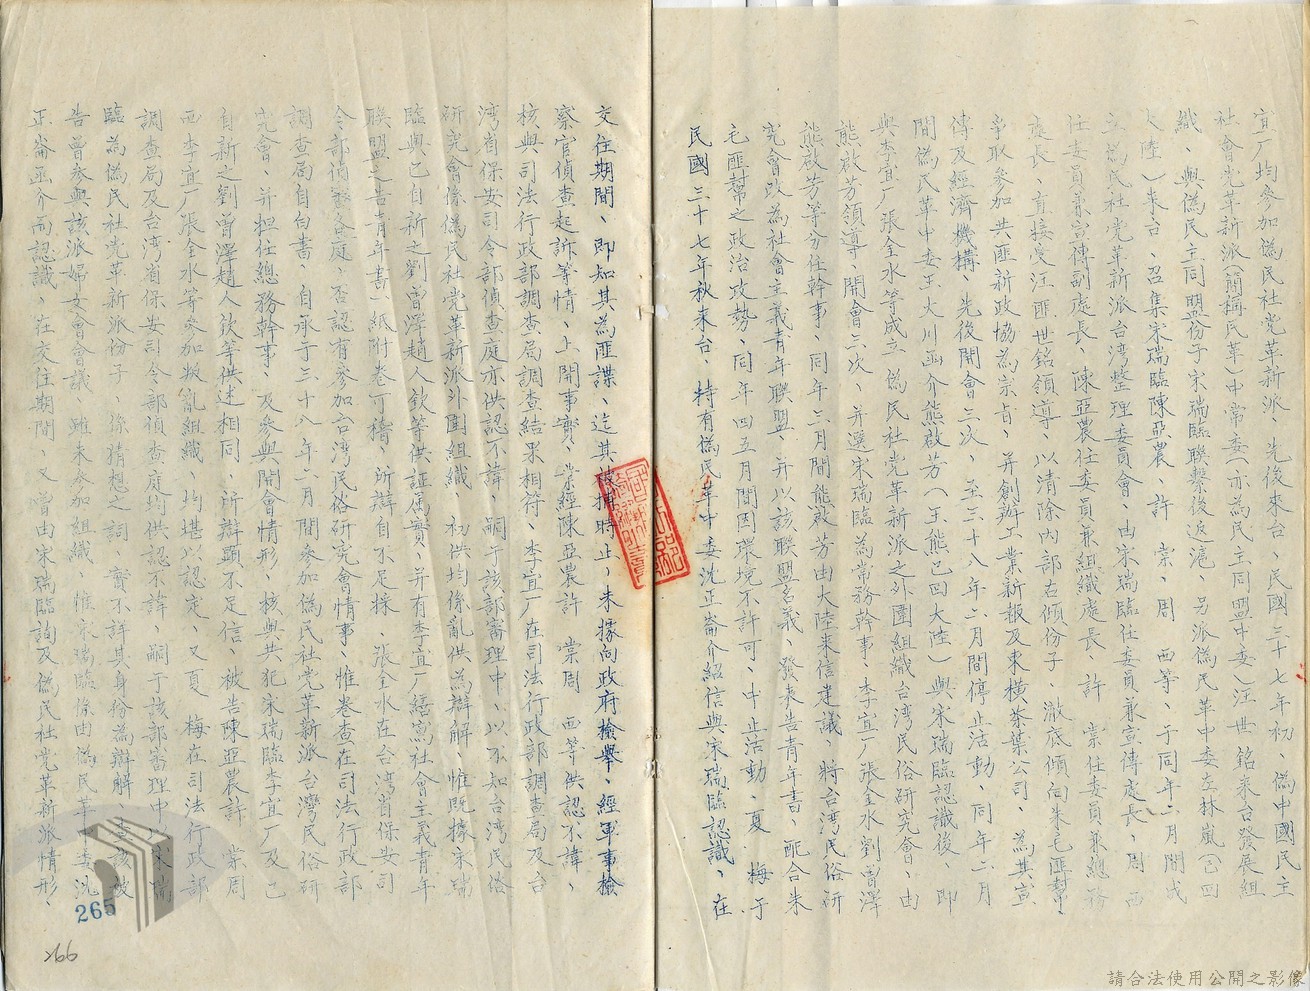 宜广均參加偽民社党革新派、先後來台、民國三十七年初、偽中國民主
社會党革新派（簡稱民革）中常委（亦為民主同盟中委）汪世銘來台發展組
織、與偽民主同盟份子宋瑞臨聯繫後返滬、另派偽民革中委左林嵐（已回
大陸）來台、召集宋瑞臨陳亞農、許 棠、周 西等、于同年二月間成
立偽民社党革新派台湾整理委員會、由宋瑞臨任委員兼宣傳處長、周 西
任委員兼宣傳副處長、陳亞農任委員兼組織處長、許 棠任委員兼總務
處長、直接受汪匪世銘領導、以清除內部右傾份子、澈底傾向朱毛匪幫、
爭取參加共匪新政協為宗旨、并創辦工業新報及東横茶葉公司、為其宣
傳及經濟機構、先後開會三次、至三十八年二月間停止活動、同年二月
間偽民革中委王大川函介熊啟芳（王熊已回大陸）與宋瑞臨認識後、即
與李宜广張全水等成立偽民社党革新派之外圍組織台湾民俗研究會、由
熊啟芳領導、開會三次、并選宋瑞臨為常務幹事、李宜广張全水劉曾澤
熊啟芳等分任幹事、同年三月間熊啟芳由大陸來信建議、將台湾民俗研
究會改為社會主義青年聯盟、并以該聯盟名義、發表告青年書、配合朱
毛匪幫之政治攻勢、同年四五月間因環境不許可、中止活動、夏 梅于
民國三十七年秋來台、持有偽民革中委沈正崙介紹信與宋瑞臨認識、在
交往期間、即知其為匪諜、迄其被捕時止、未據向政府檢舉、經軍事檢
察官偵查起訴等情、上開事實、業經陳亞農許 棠周 西等供認不諱、
核與司法行政部調查局調查結果相符、李宜广在司法行政部調查局及台
湾省保安司令部偵查庭亦供認不諱、嗣于該部審理中、以不知台湾民俗
研究會係偽民社党革新派外圍組織、初供均係亂供為辯解、惟既據宋瑞
臨與已自新之劉曾澤趙人欽等供証属實、并有李宜广繕寫社會主義青年
聯盟之告青年書一紙附卷可稽、所辯自不足採、張全水在台湾省保安司
令部偵審各庭、否認有參加台湾民俗研究會情事、惟卷查在司法行政部
調查局自白書、自承于三十八年二月間參加偽民社党革新派台灣民俗研
究會、并担任總務幹事、及參與開會情形、核與共犯宋瑞臨李宜广及已
自新之劉曾澤趙人欽等供述相同、所辯顯不足信、被告陳亞農許 棠周
西李宜广張全水等參加叛亂組織、均堪以認定、又夏 梅在司法行政部
調查局及台湾省保安司令部偵查庭均供認不諱、嗣于該部審理中以宋瑞
臨為偽民社党革新派份子、係猜想之詞、實不詳其身份為辯解、查該被
告曾參與該派婦女會會議、雖未參加組織、惟宋瑞臨係由偽民革中委沈
正崙函介而認識、在交往期間、又曾由宋瑞臨詢及偽民社党革新派情形、
265
266
請合法使用公開之影像